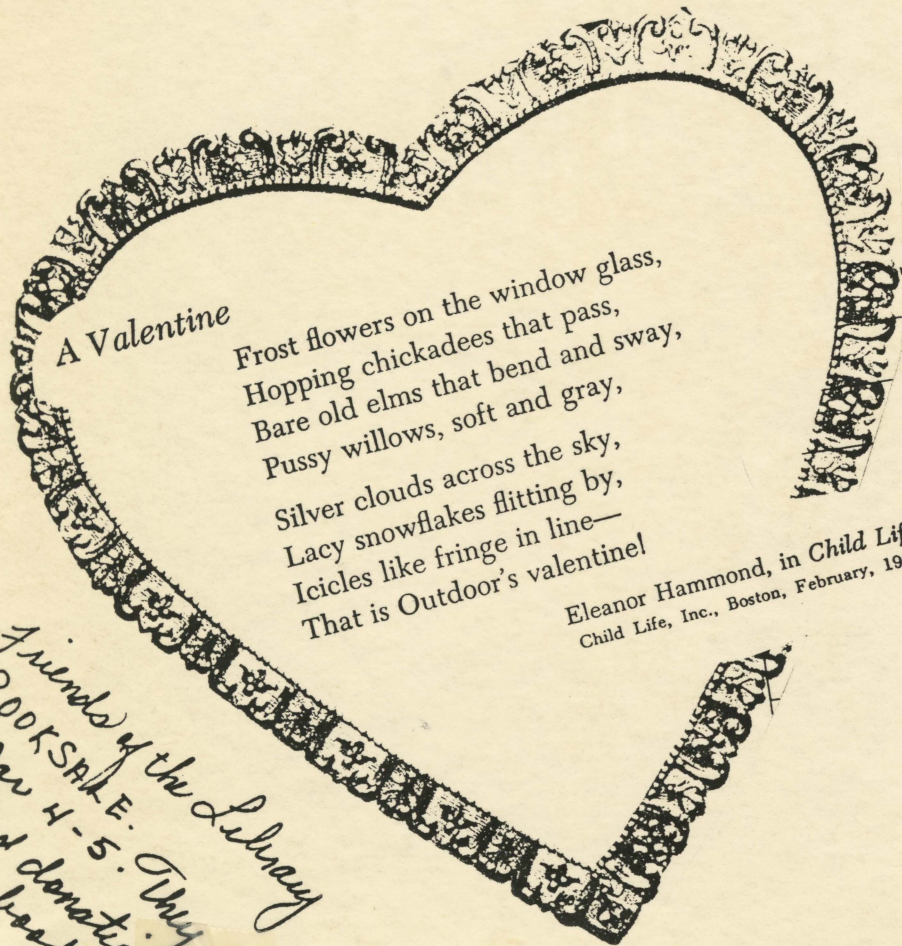 A Valentine
Frost flowers on the window glass,
Hopping chickadees that pass,
Bare old elms that bend and sway,
Pussy willows, soft and gray,
Silver clouds across the sky,
Lacy snowflakes flitting by,
Icicles like fringe in line—
That is Outdoor's valentine!
Eleanor Hammond, in Child
Child Life, Inc., Boston, February,
Friends of the Library
BOOKSALE.
4-5. They